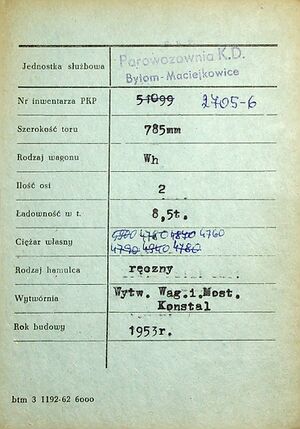 Jednostka służbowa Parowozownia K.D.
Bytom-Maciejkowice
Nr inwentarza PKP 51099 2705-6
Szerokość toru 785mm
Rodzaj wagonu Wh
Ilość osi 2
Ładowność w t. 8,5t.
Ciężar własny 4760 4840 4760
4790 4940 4780
Rodzaj hamulca ręczny
Wytwórnia Wytw. Wag.i.Most.
Konstal
Rok budowy 1953r.
btm 3 1192-62 6000